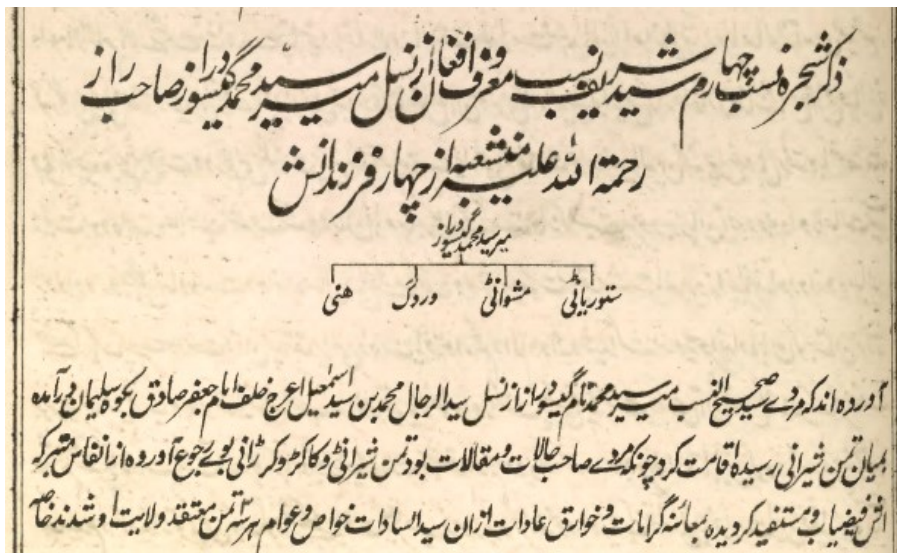 ذکر شجره نسب چهارم سید شریف نسب معروف و افغان از نسل میر سید محمد گیسو دراز صاحب راز
رحمة الله علیه منشعبه از چهار فرزندانش
میر سید محمد گیسو دراز
ستوریانی مشوانی وردگ هنی
آورده اند که مردے سید صحیح النسب میر سید محمد نام گیسو دراز از نسل سید الرجال محمد بن سید اسمعیل اعرج خلف امام جعفر صادق بکوه سلیمان در آمده
بمیان تمن شیرانی رسیده اقامت کرد چونکه مردے صاحب حالات و مقالات بود تمن شیرانی و کاکڑ و کرڑانی بوے رجوع آورده از انفاس متبرکه
اش فیضیاب و مستفید گردیده بمعائنه کرامات و خوارق عادات ازان سید السادات خواص و عوام هر سه تمن معتقد ولایت او شدند خاصه